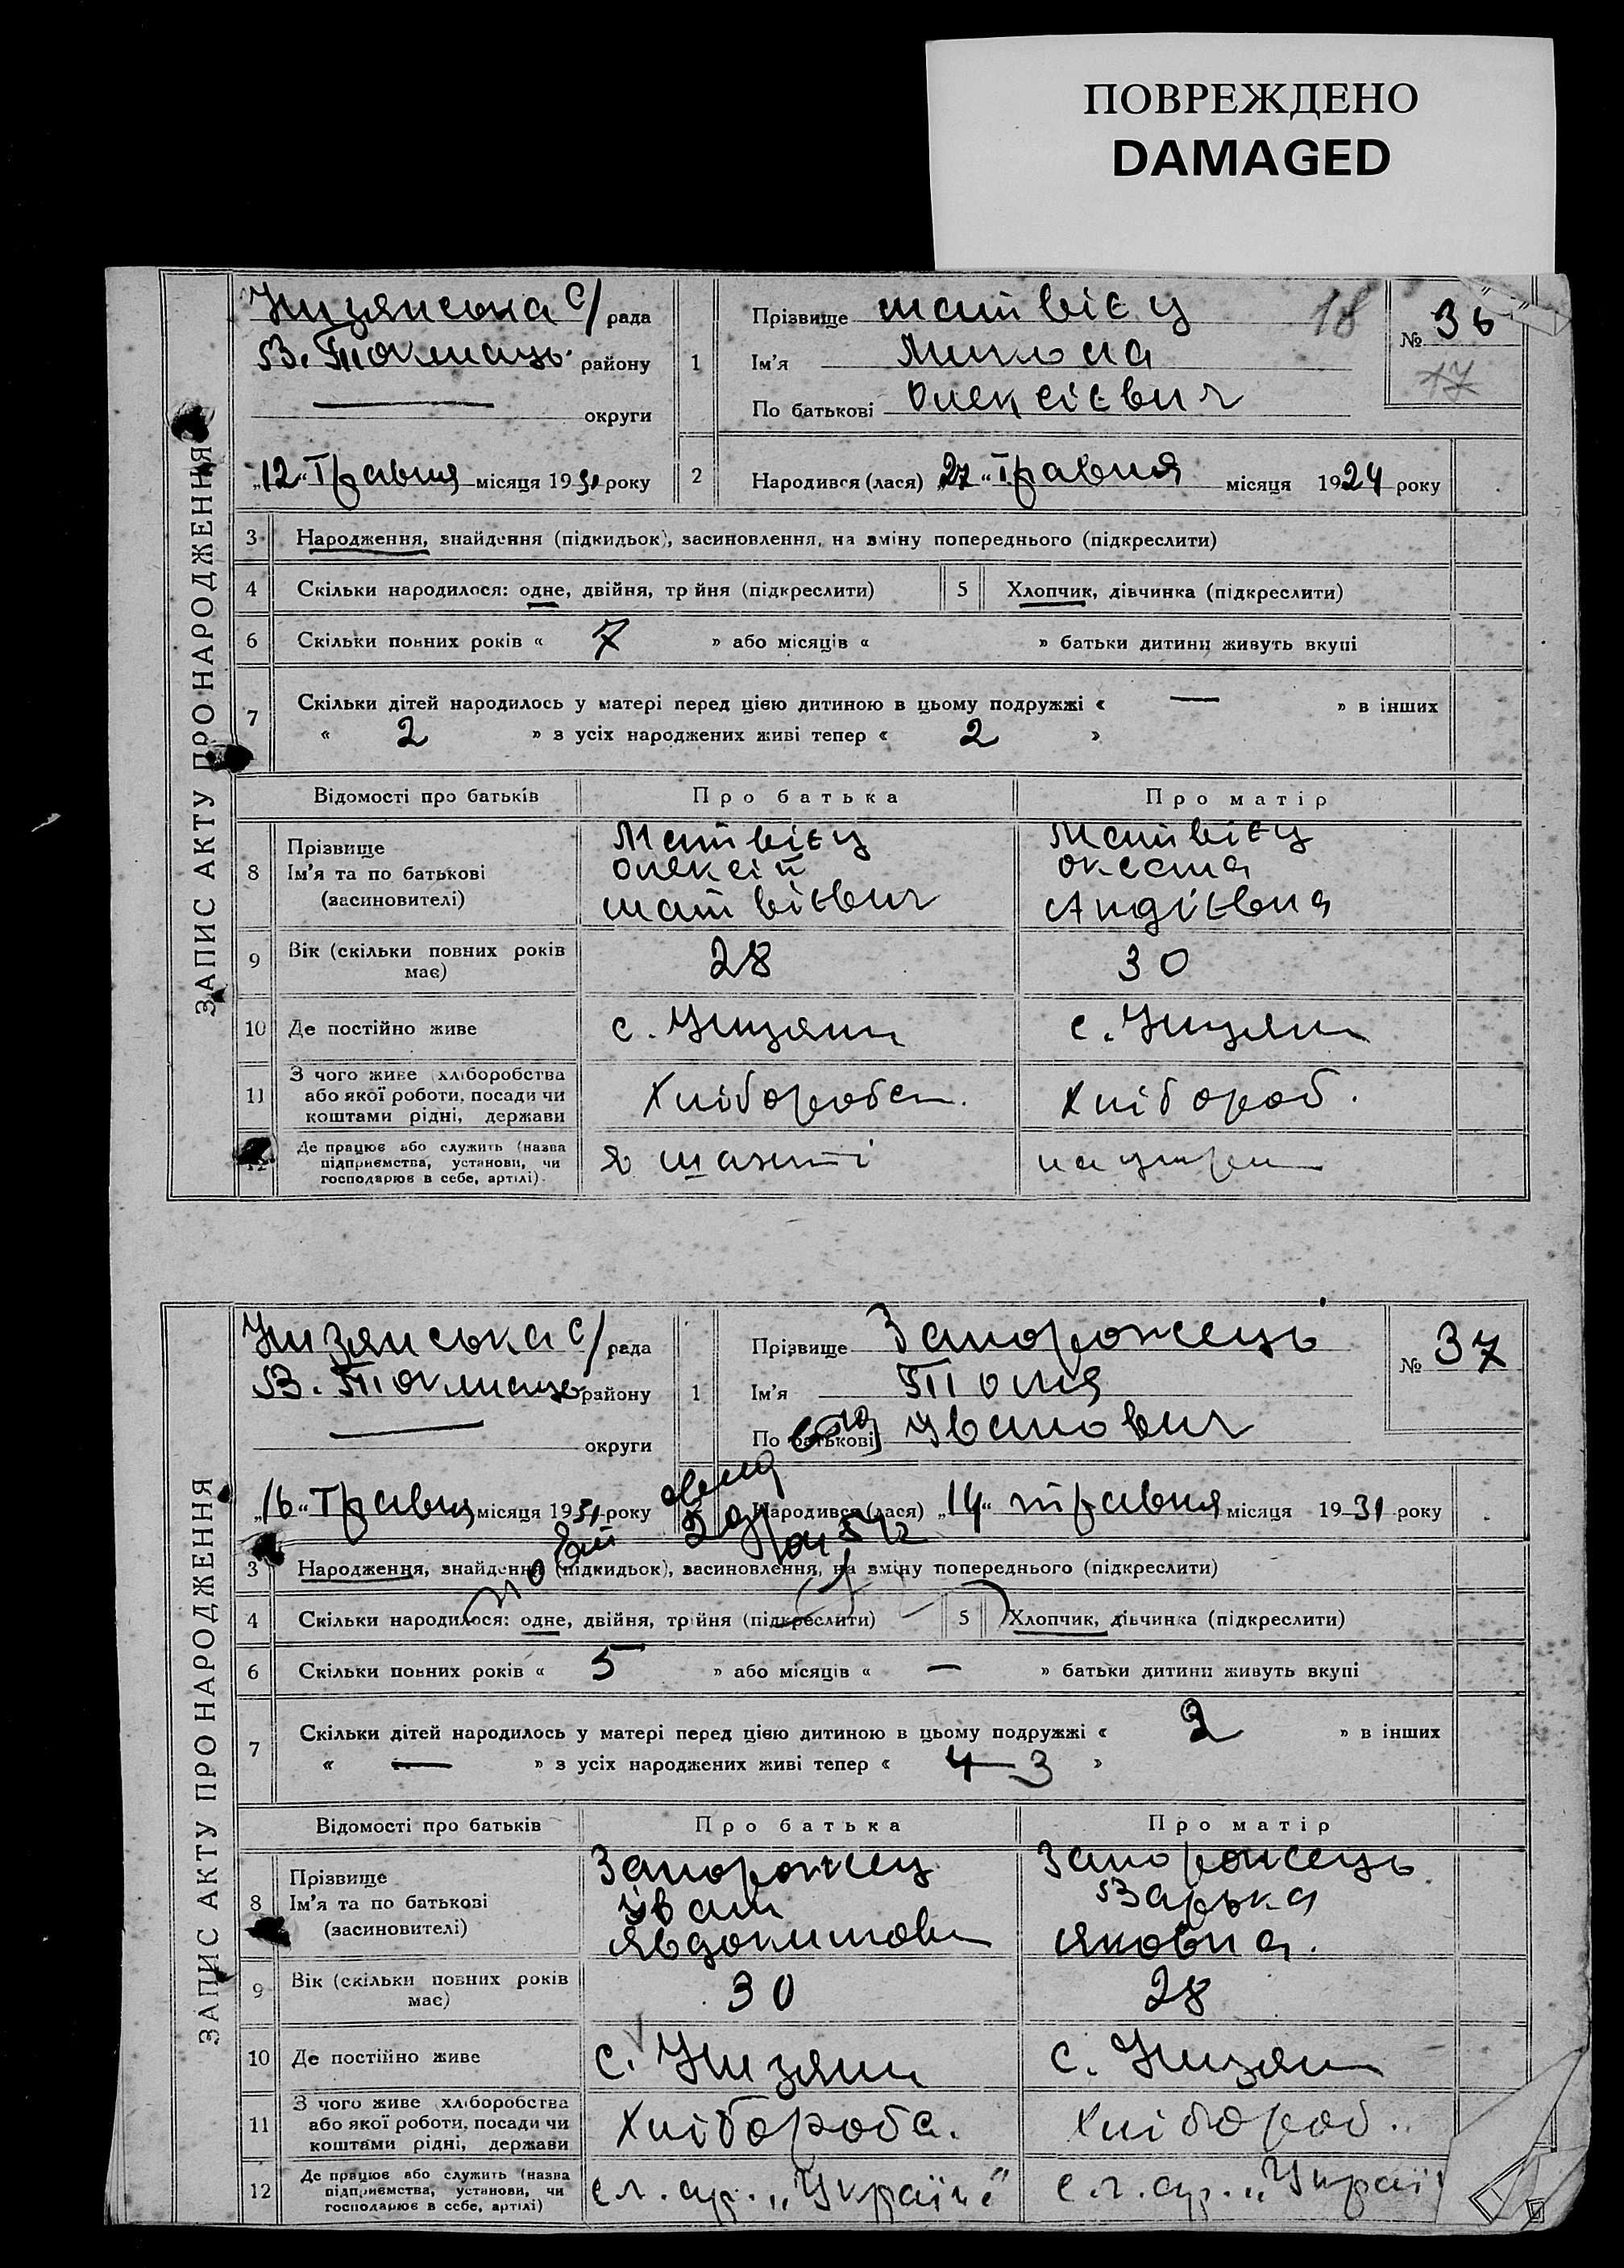 ПОВРЕЖДЕНО
DAMAGED
ЗАПИС АКТУ ПРО НАРОДЖЕННЯ
Низянська с/рада
В. Токмаць. району
округи
„12“ Травня місяця 1931 року
1 Прізвище Матвієц 18
Ім'я Микола
По батькові Олексієвич
№ 36
17
2 Народився (лася) „27“ травня місяця 1924 року
3 Народження, знайдення (підкидьок), засиновлення, на зміну попереднього (підкреслити)
4 Скільки народилося: одне, двійня, трійня (підкреслити) 5 Хлопчик, дівчинка (підкреслити)
6 Скільки повних років « 7 » або місяців « » батьки дитини живуть вкупі
7 Скільки дітей народилось у матері перед цією дитиною в цьому подружжі « — » в інших
« 2 » з усіх народжених живі тепер « 2 »
Відомості про батьків Про батька Про матір
8 Прізвище Матвієц Матвієц
Ім'я та по батькові Олексій Оксана
(засиновителі) Матвієвич
9 Вік (скільки повних років має) 28 30
10 Де постійно живе с. Низяни с. Низяни
11 З чого живе (хліборобства або якої роботи, посади чи коштами рідні, держави Хліборобст. Хлібороб.
12 Де працює або служить (назва підприємства, установи, чи господарює в себе, артілі).
ЗАПИС АКТУ ПРО НАРОДЖЕННЯ
Низянська с/рада
В. Токмацьк району
округи
„16“ Травня місяця 1931 року
1 Прізвище Запорожець
Ім'я Толя
По батькові Іванович
№ 37
Народився (лася) „14“ травня місяця 1931 року
3 Народження, знайдення (підкидьок), засиновлення, на зміну попереднього (підкреслити)
4 Скільки народилося: одне, двійня, трійня (підкреслити) 5 Хлопчик, дівчинка (підкреслити)
6 Скільки повних років « 5 » або місяців « — » батьки дитини живуть вкупі
7 Скільки дітей народилось у матері перед цією дитиною в цьому подружжі « 2 » в інших
« — » з усіх народжених живі тепер « 4 3 »
Відомості про батьків Про батька Про матір
8 Прізвище Запорожец Запорожець
Ім'я та по батькові Іван Варька
(засиновителі) Явдокимови Яковна.
9 Вік (скільки повних років має) 30 28
10 Де постійно живе с. Низяни с. Низяни
11 З чого живе (хліборобства або якої роботи, посади чи коштами рідні, держави Хлібороба. Хлібороб..
12 Де працює або служить (назва підприємства, установи, чи господарює в себе, артілі)